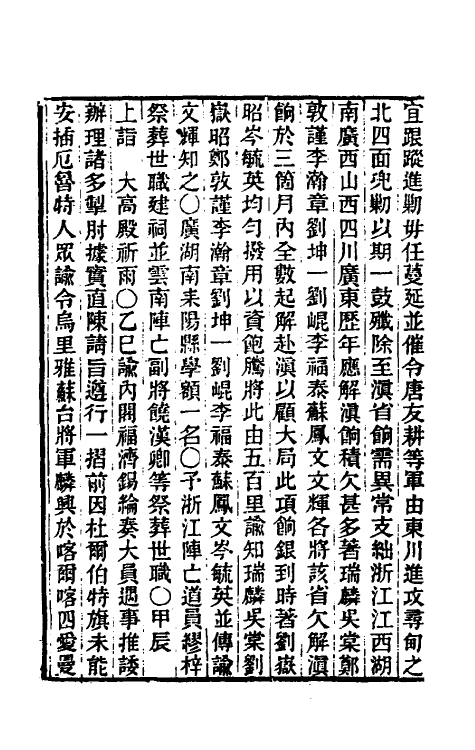 宜跟蹤進勦毋任蔓延並催令唐友耕等軍由東川進攻尋甸之
北四面兜勦以期一鼓殲除至滇省餉需異常支絀浙江江西湖
南廣西山西四川廣東歷年應解滇餉積欠甚多著瑞麟吳棠鄭
敦謹李瀚章劉坤一劉崐李福泰蘇鳳文文輝各將該省欠解滇
餉於三箇月內全數起解赴滇以顧大局此項餉銀到時著劉嶽
昭岑毓英均勻撥用以資飽騰將此由五百里諭知瑞麟吳棠劉
嶽昭鄭敦謹李瀚章劉坤一劉崐李福泰蘇鳳文岑毓英並傳諭
文輝知之〇廣湖南耒陽縣學額一名〇予浙江陣亡道員繆梓
祭葬世職建祠並雲南陣亡副將饒漢卿等祭葬世職〇甲辰
上詣　大高殿祈雨〇乙巳諭內閣福濟錫綸奏大員遇事推諉
辦理諸多掣肘據實直陳請旨遵行一摺前因杜爾伯特旗未能
安插厄魯特人眾諭令烏里雅蘇台將軍麟興於喀爾喀四愛曼